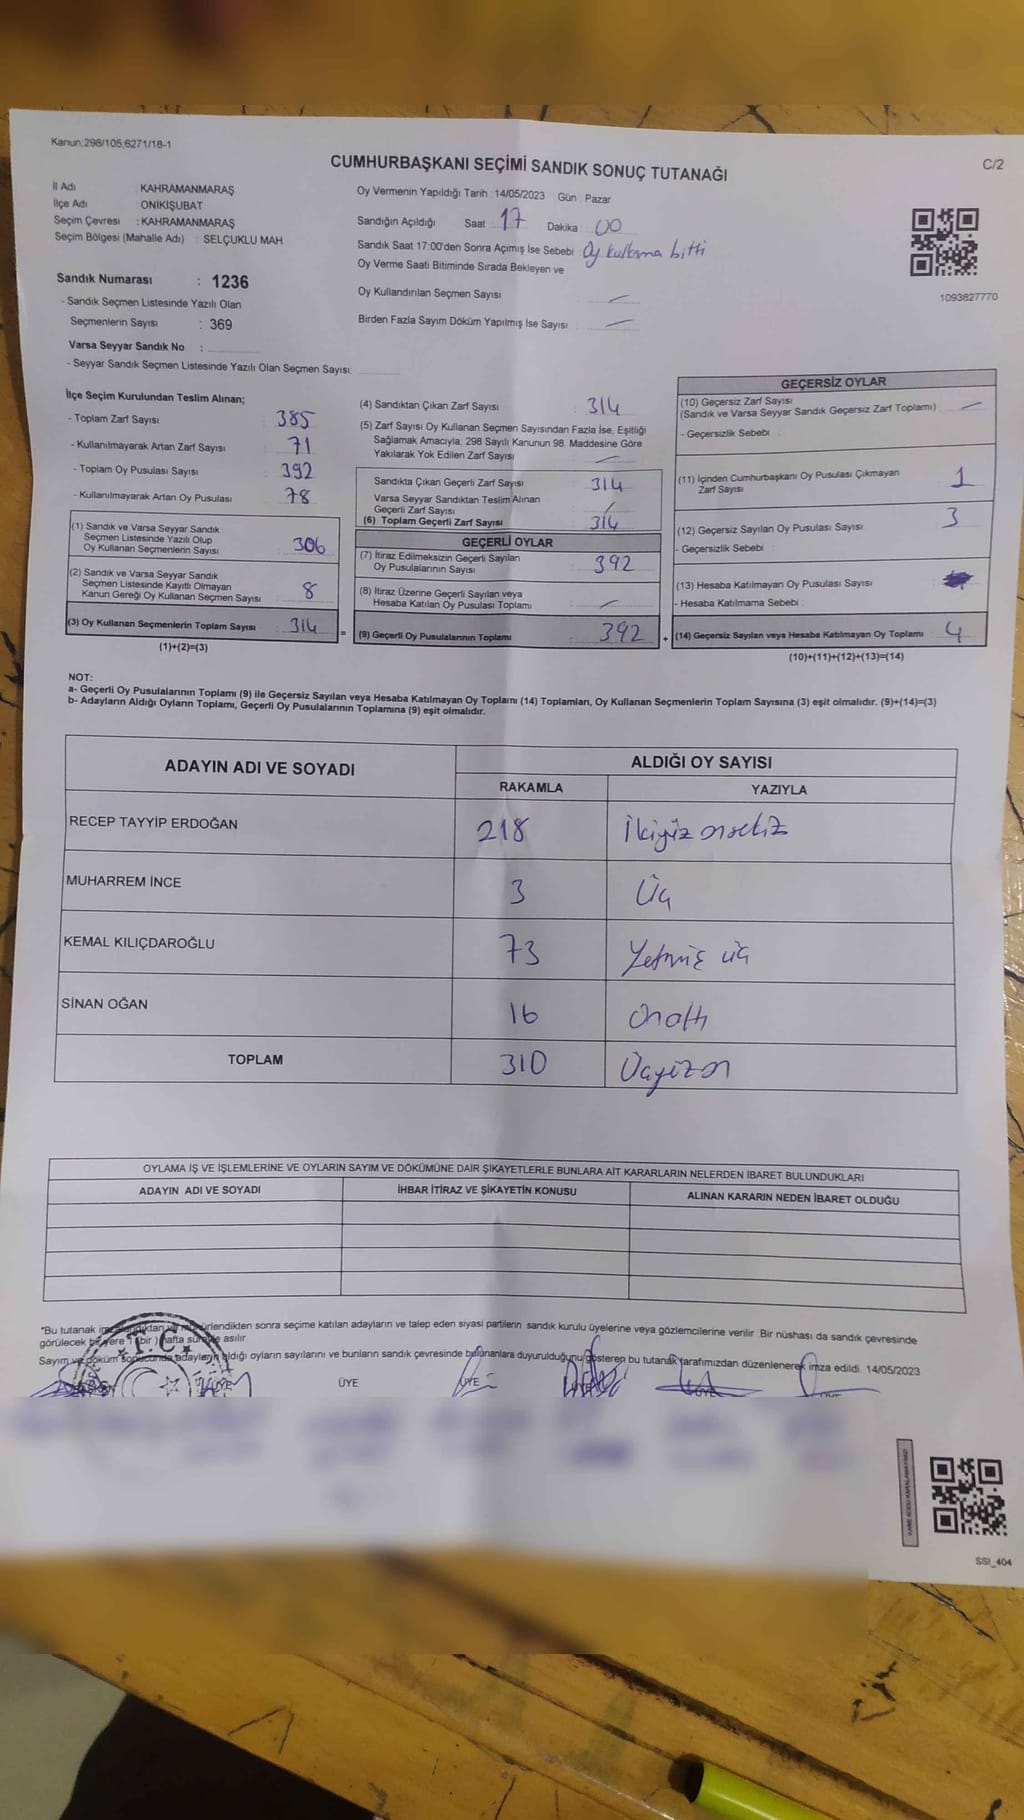 Kanun.298/105;6271/18-1
C/2
CUMHURBAŞKANI SEÇİMİ SANDIK SONUÇ TUTANAĞI
İl Adı : KAHRAMANMARAŞ
İlçe Adı : ONİKİŞUBAT
Seçim Çevresi : KAHRAMANMARAŞ
Seçim Bölgesi (Mahalle Adı) : SELÇUKLU MAH.
Sandık Numarası : 1236
- Sandık Seçmen Listesinde Yazılı Olan
Seçmenlerin Sayısı : 369
Varsa Seyyar Sandık No :
- Seyyar Sandık Seçmen Listesinde Yazılı Olan Seçmen Sayısı:
Oy Vermenin Yapıldığı Tarih : 14/05/2023 Gün Pazar
Sandığın Açıldığı Saat 17 Dakika 00
Sandık Saat 17:00'den Sonra Açımış İse Sebebi Oy kullanma bitti
Oy Verme Saati Bitiminde Sırada Bekleyen ve
Oy Kullandırılan Seçmen Sayısı
Birden Fazla Sayım Döküm Yapılmış İse Sayısı :
1093827770
İlçe Seçim Kurulundan Teslim Alınan;
- Toplam Zarf Sayısı 385
- Kullanılmayarak Artan Zarf Sayısı : 71
- Toplam Oy Pusulası Sayısı : 392
- Kullanılmayarak Artan Oy Pusulası : 78
(1) Sandık ve Varsa Seyyar Sandık
Seçmen Listesinde Yazılı Olup
Oy Kullanan Seçmenlerin Sayısı : 306
(2) Sandık ve Varsa Seyyar Sandık
Seçmen Listesinde Kayıtlı Olmayan
Kanun Gereği Oy Kullanan Seçmen Sayısı : 8
(3) Oy Kullanan Seçmenlerin Toplam Sayısı : 314
(1)+(2)=(3)
(4) Sandıktan Çıkan Zarf Sayısı : 314
(5) Zarf Sayısı Oy Kullanan Seçmen Sayısından Fazla İse, Eşitliği
Sağlamak Amacıyla; 298 Sayılı Kanunun 98. Maddesine Göre
Yakılarak Yok Edilen Zarf Sayısı
Sandıkta Çıkan Geçerli Zarf Sayısı : 314
Varsa Seyyar Sandıktan Teslim Alınan
Geçerli Zarf Sayısı
(6) Toplam Geçerli Zarf Sayısı : 314
GEÇERLİ OYLAR
(7) İtiraz Edilmeksizin Geçerli Sayılan
Oy Pusulalarının Sayısı : 392
(8) İtiraz Üzerine Geçerli Sayılan veya
Hesaba Katılan Oy Pusulası Toplamı :
= (9) Geçerli Oy Pusulalarının Toplamı : 392 +
GEÇERSİZ OYLAR
(10) Geçersiz Zarf Sayısı
(Sandık ve Varsa Seyyar Sandık Geçersiz Zarf Toplamı) :
- Geçersizlik Sebebi :
(11) İçinden Cumhurbaşkanı Oy Pusulası Çıkmayan
Zarf Sayısı : 1
(12) Geçersiz Sayılan Oy Pusulası Sayısı : 3
- Geçersizlik Sebebi :
(13) Hesaba Katılmayan Oy Pusulası Sayısı :
- Hesaba Katılmama Sebebi :
(14) Geçersiz Sayılan veya Hesaba Katılmayan Oy Toplamı : 4
(10)+(11)+(12)+(13)=(14)
NOT:
a- Geçerli Oy Pusulalarının Toplamı (9) ile Geçersiz Sayılan veya Hesaba Katılmayan Oy Toplamı (14) Toplamları, Oy Kullanan Seçmenlerin Toplam Sayısına (3) eşit olmalıdır. (9)+(14)=(3)
b- Adayların Aldığı Oyların Toplamı, Geçerli Oy Pusulalarının Toplamına (9) eşit olmalıdır.
ADAYIN ADI VE SOYADI
ALDIĞI OY SAYISI
RAKAMLA YAZIYLA
RECEP TAYYİP ERDOĞAN 218 İkiyüz onsekiz
MUHARREM İNCE 3 Üç
KEMAL KILIÇDAROĞLU 73 Yetmiş üç
SİNAN OĞAN 16 Onaltı
TOPLAM 310 Üçyüzon
OYLAMA İŞ VE İŞLEMLERİNE VE OYLARIN SAYIM VE DÖKÜMÜNE DAİR ŞİKAYETLERLE BUNLARA AİT KARARLARIN NELERDEN İBARET BULUNDUKLARI
ADAYIN ADI VE SOYADI İHBAR İTİRAZ VE ŞİKAYETİN KONUSU ALINAN KARARIN NEDEN İBARET OLDUĞU
*Bu tutanak imzalandıktan ve mühürlendikten sonra seçime katılan adayların ve talep eden siyasi partilerin sandık kurulu üyelerine veya gözlemcilerine verilir. Bir nüshası da sandık çevresinde
görülecek bir yere 1 (bir) hafta süreyle asılır.
Sayım ve döküm sonucunda adayların aldığı oyların sayılarını ve bunların sandık çevresinde bulunanlara duyurulduğunu gösteren bu tutanak tarafımızdan düzenlenerek imza edildi. 14/05/2023
T.C.
BAŞKAN ÜYE ÜYE ÜYE ÜYE ÜYE
SSİ_404